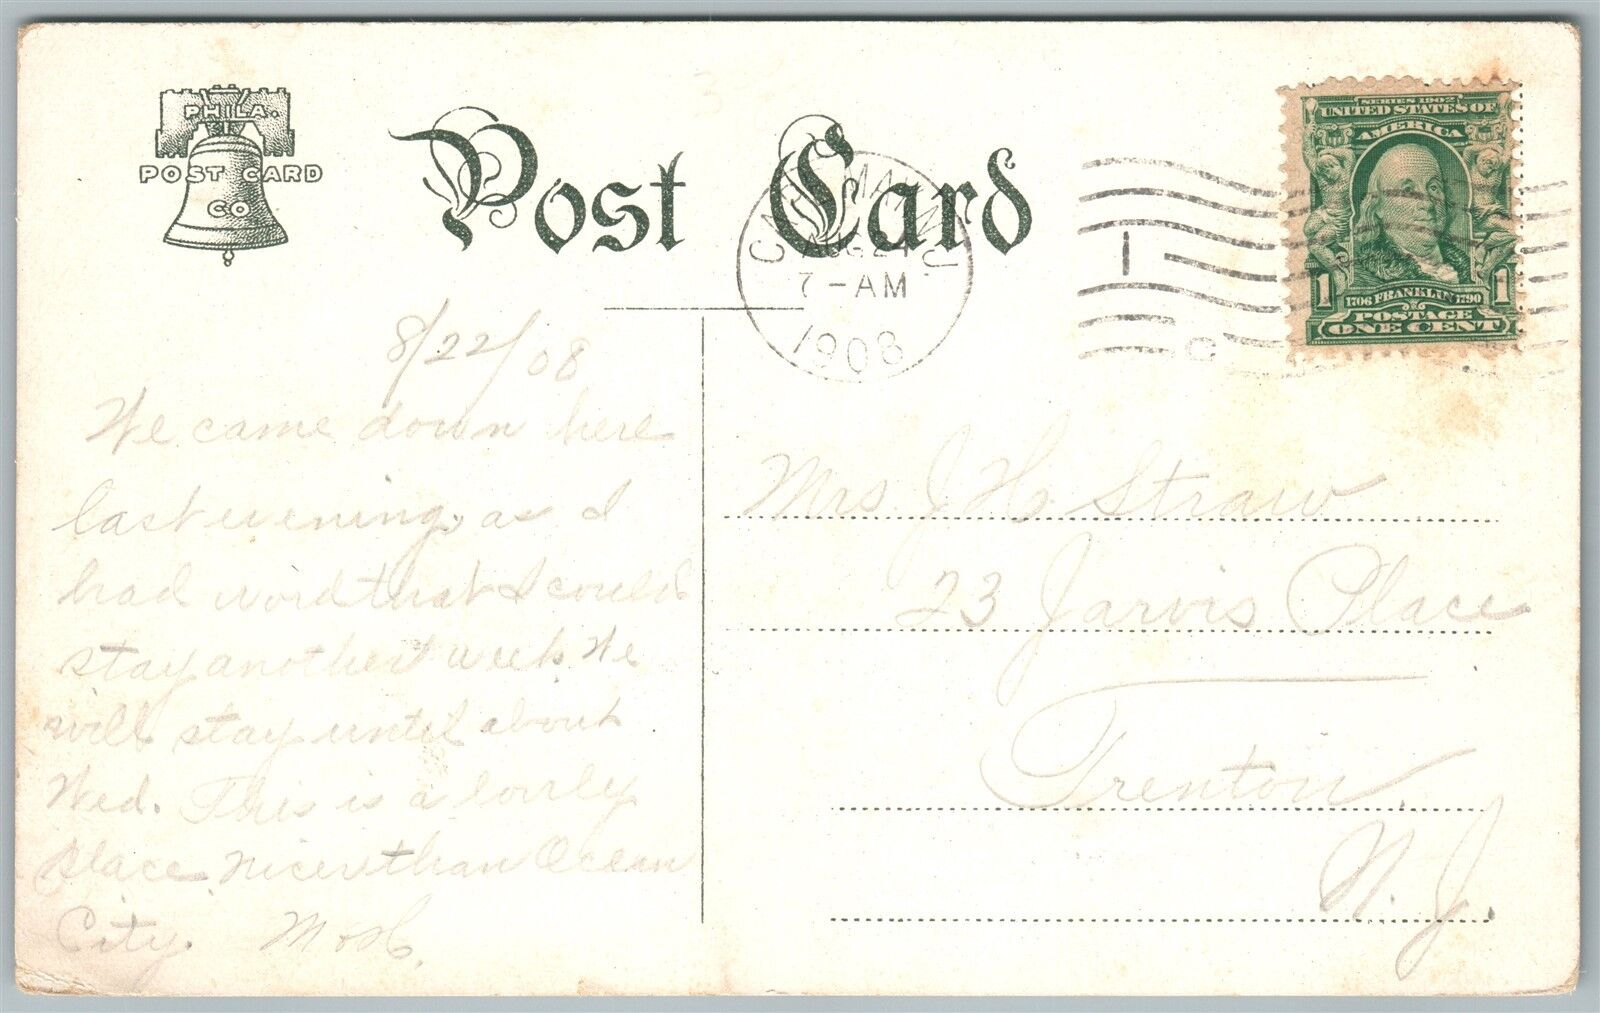 PHILA.
POST CARD
CO
Post Card
CAPE MAY N.J.
AUG 24
7-AM
1908
SERIES 1902
UNITED STATES OF
AMERICA
1 1
1706 FRANKLIN 1790
POSTAGE
ONE CENT
8/22/08
We came down here
last evening, as I
had word that I could
stay another week. We
will stay until about
Wed. This is a lovely
place. Nicer than Ocean
City.
Mrs J H Straw
23 Jarvis Place
Trenton.
N. J.